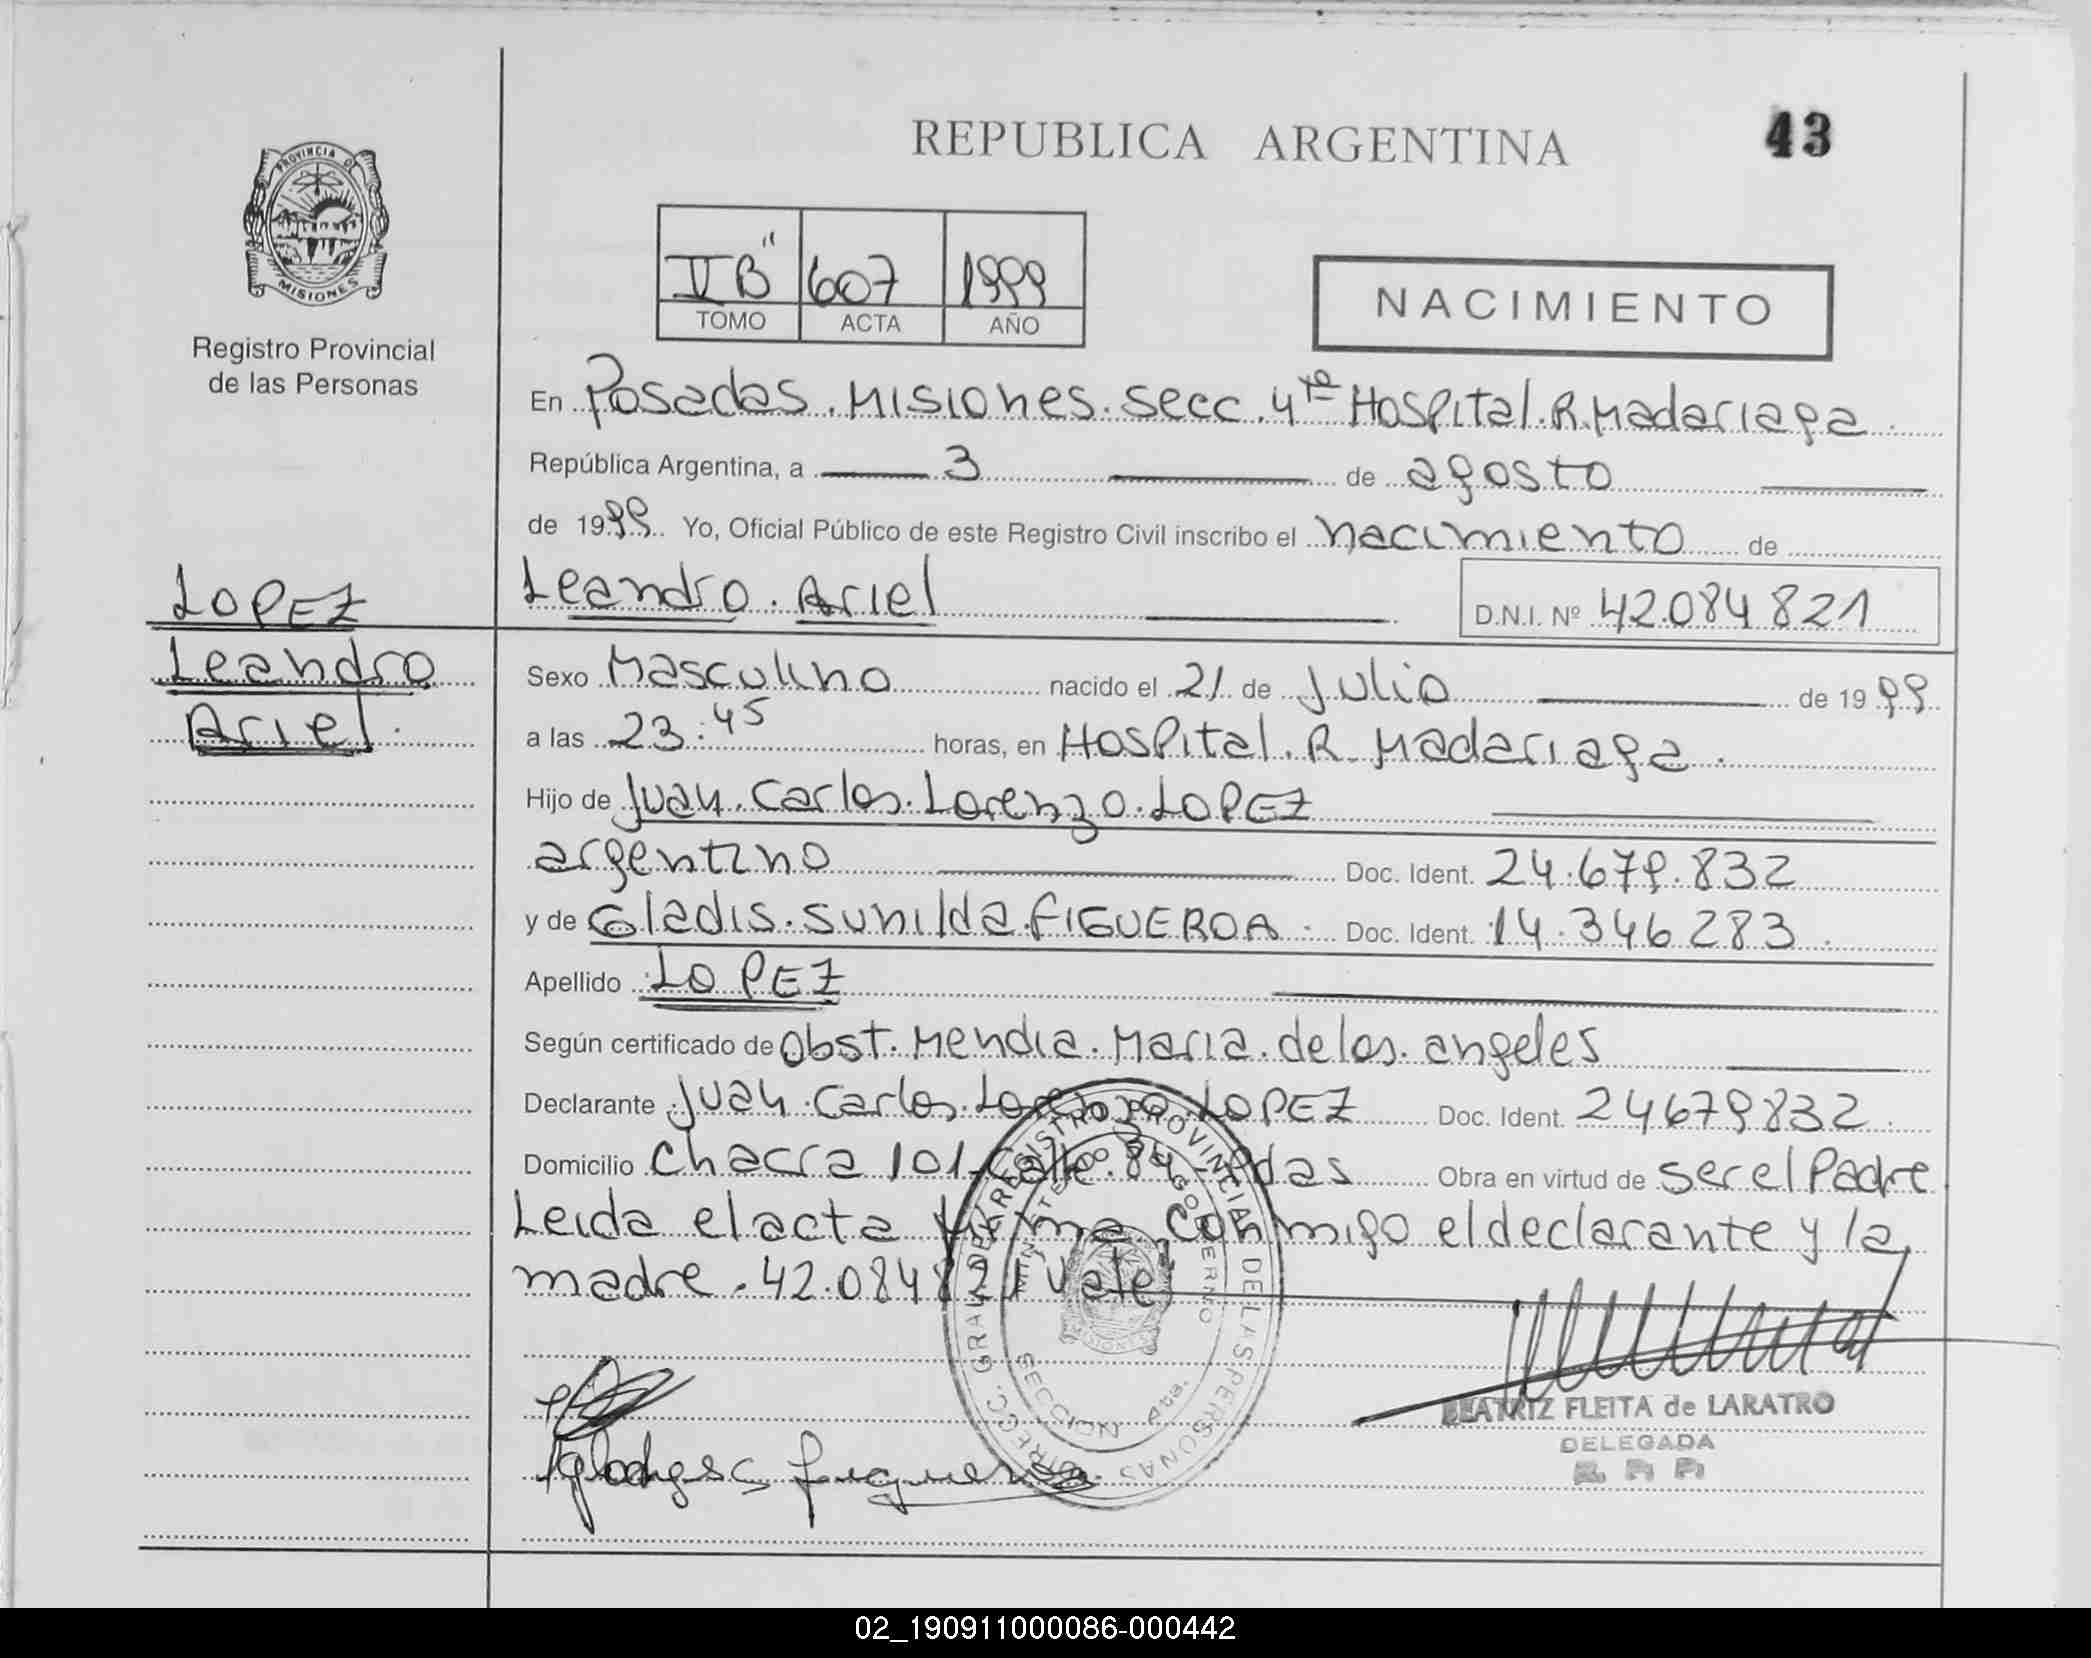 REPUBLICA ARGENTINA
43
PROVINCIA DE
MISIONES
Registro Provincial
de las Personas
II B" 607 1999
TOMO ACTA AÑO
NACIMIENTO
En Posadas. Misiones. secc. 4ta Hospital. R. Madariaga.
República Argentina, a 3 de agosto
de 1999. Yo, Oficial Público de este Registro Civil inscribo el nacimiento de
Leandro. Ariel
D.N.I. Nº 42.084 821
LOPEZ
Leandro
Ariel.
Sexo Masculino nacido el 21 de Julio de 1999
a las 23:45 horas, en Hospital. R. Madariaga.
Hijo de Juan. Carlos. Lorenzo. LOPEZ
argentino Doc. Ident. 24.679.832
y de Gladis. Sunilda. FIGUEROA. Doc. Ident. 14.346 283.
Apellido LOPEZ
Según certificado de Obst. Mendia. Maria. de los. angeles
Declarante Juan. Carlos. Lorenzo. LOPEZ Doc. Ident. 24679832.
Domicilio Chacra 101. Calle. 84 - Pdas Obra en virtud de ser el Padre
Leida el acta firma conmigo el declarante y la
madre. 42.084821 Vale
DIRECC. GRAL. DEL REGISTRO PROVINCIAL DE LAS PERSONAS
MINISTERIO DE GOBIERNO
SECCION 4ta.
BEATRIZ FLEITA de LARATRO
DELEGADA
R. P. P.
02_190911000086-000442